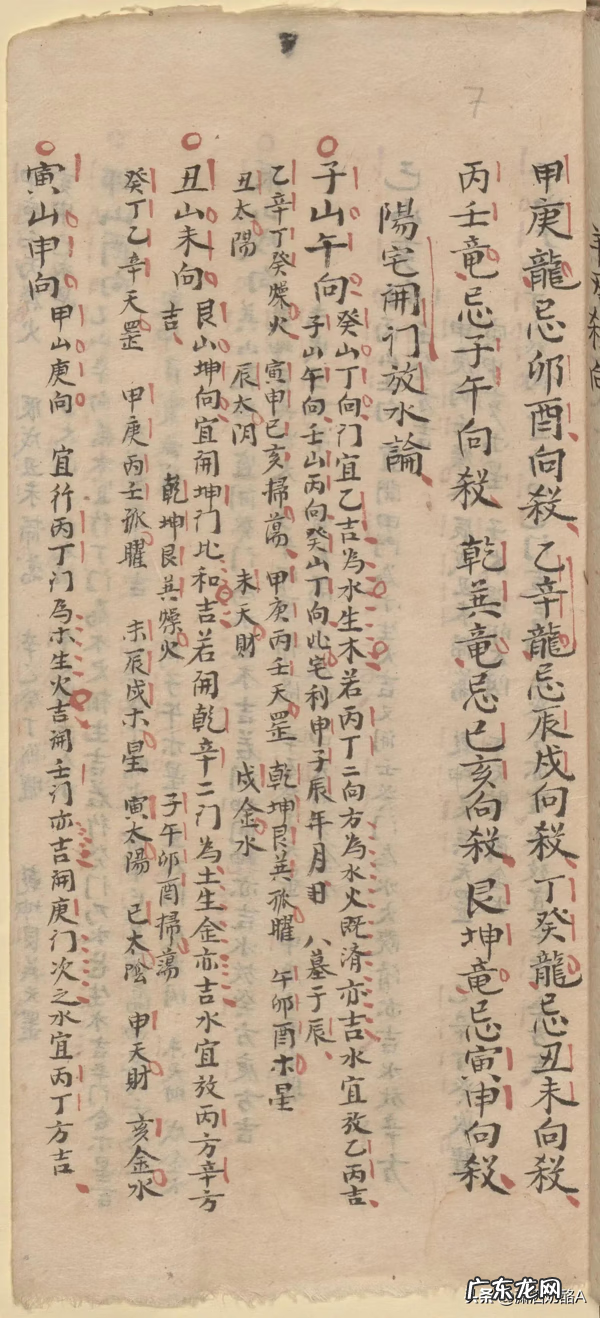 甲庚龍忌卯酉向殺 乙辛龍忌辰戌向殺 丁癸龍忌丑未向殺
丙壬竜忌子午向殺 乾巽竜忌巳亥向殺 艮坤竜忌寅申向殺
陽宅開门放水論
子山午向 癸山丁向门宜乙吉為水生木若丙丁二向方為水火既済亦吉水宜放乙丙吉
子山午向壬山丙向癸山丁向此宅利申子辰年月日 八墓于辰
乙辛丁癸燥火 寅申巳亥掃蕩 甲庚丙壬天罡 乾坤艮巽孤曜 午卯酉木星
丑太陽 辰太阴 未天財 戌金水
丑山未向 艮山坤向宜開坤门比和吉若開乾辛二门為土生金亦吉水宜放丙方辛方
吉 乾坤艮巽燥火 子午卯酉掃蕩
癸丁乙辛天罡 甲庚丙壬孤曜 未辰戌木星 寅太陽 巳太陰 申天財 亥金水
寅山申向 甲山庚向 宜行丙丁门為木生火吉開壬门亦吉開庚门次之水宜丙丁方吉
7
广东龙网